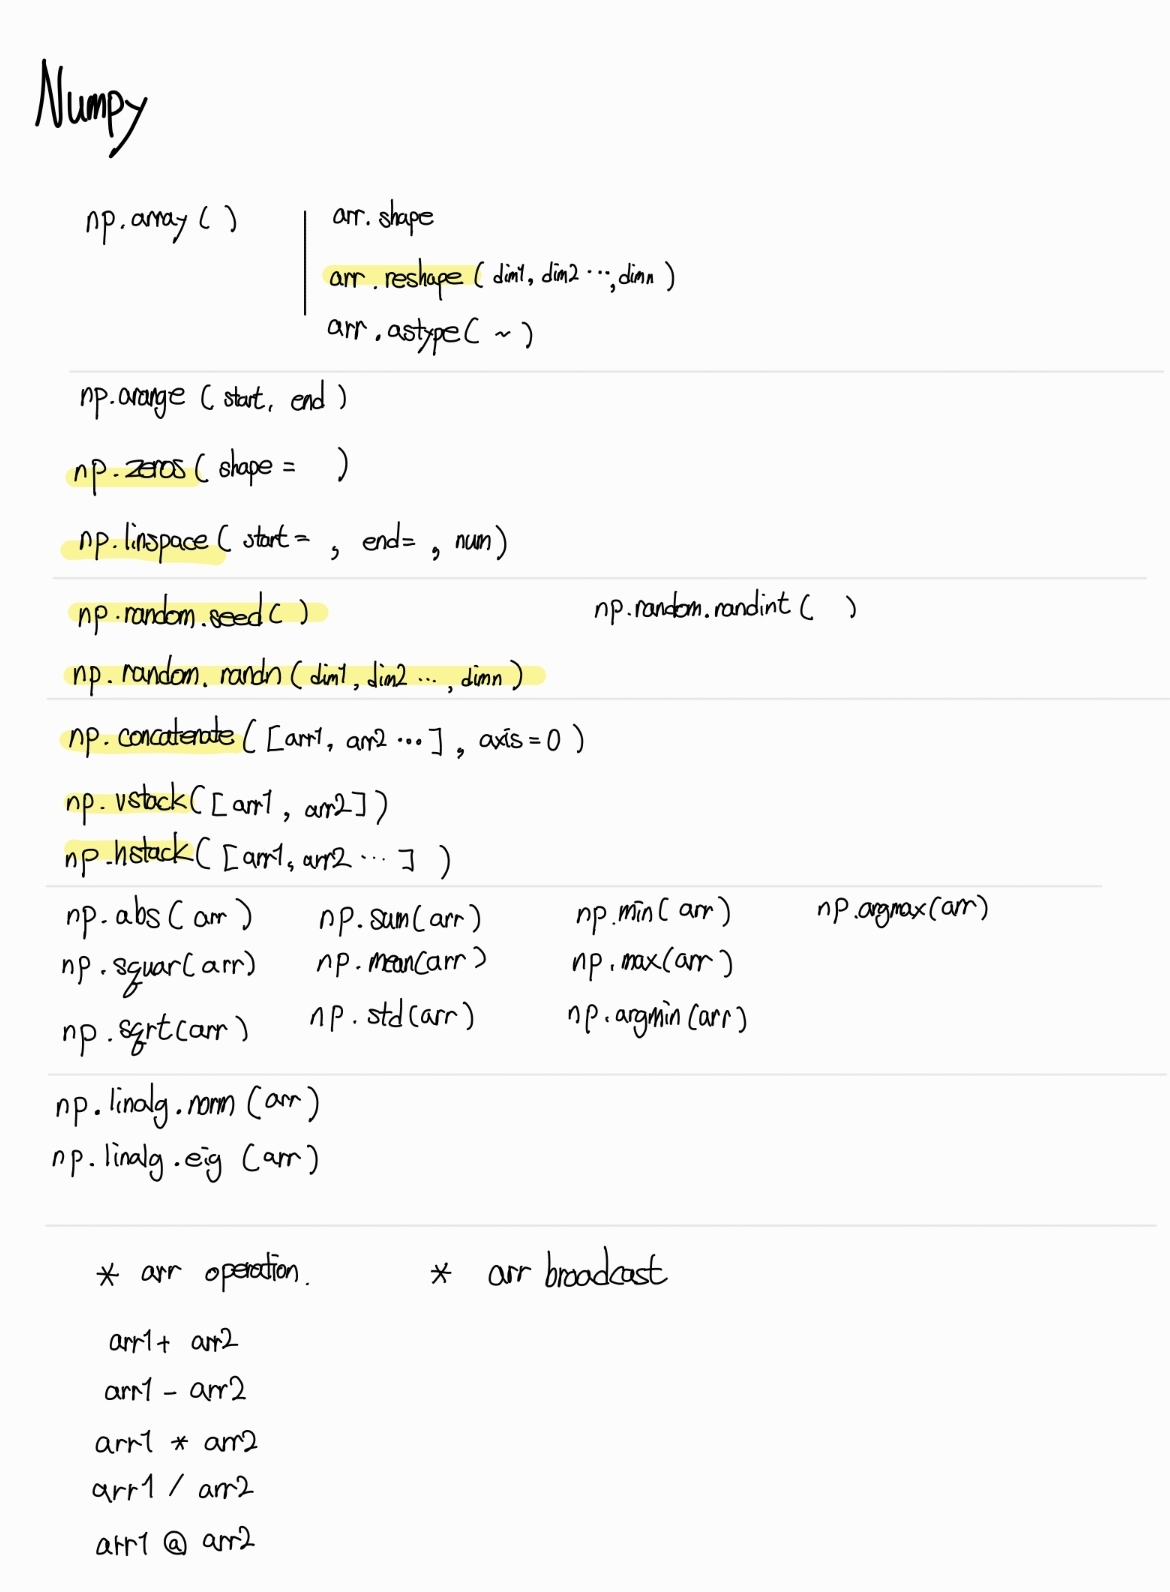 Numpy
np.array( )
arr.shape
arr.reshape( dim1, dim2 ···, dimn )
arr.astype( ~ )
np.arange ( start, end )
np.zeros( shape = )
np.linspace( start= , end= , num)
np.random.seed( )
np.random.randint( )
np.random.randn( dim1, dim2 ··· , dimn )
np.concatenate( [arr1, arr2 ···] , axis = 0 )
np.vstack( [arr1 , arr2] )
np.hstack( [arr1, arr2 ··· ] )
np.abs( arr ) np.sum( arr ) np.min( arr ) np.argmax(arr)
np.squar( arr) np.mean(arr) np.max(arr)
np.sqrt(arr ) np.std(arr) np.argmin(arr)
np.linalg.norm (arr )
np.linalg.eig (arr )
* arr operation. * arr broadcast
arr1 + arr2
arr1 - arr2
arr1 * arr2
arr1 / arr2
arr1 @ arr2